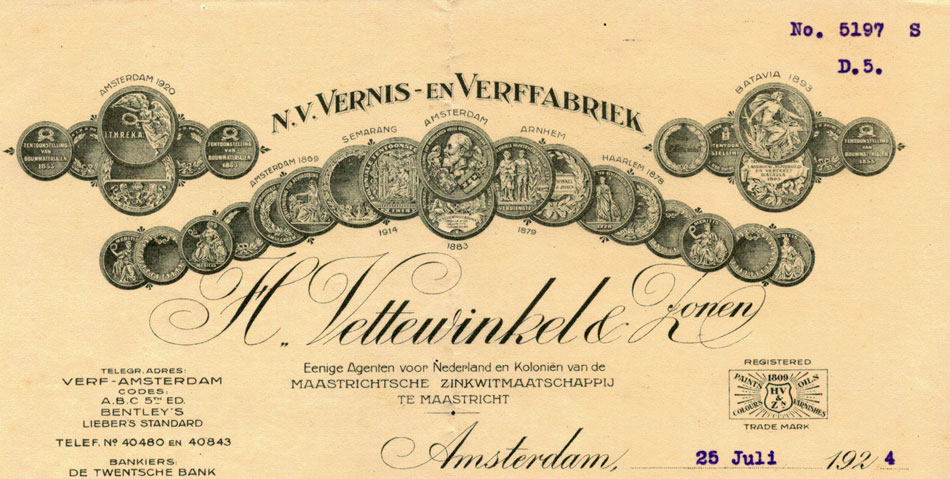 No. 5197 S
D.5.
N.V. VERNIS-EN VERFFABRIEK
AMSTERDAM 1920
I.T.H.R.E.K.A.
TENTOONSTELLING
VAN
BOUWMATERIALEN
AMSTERDAM 1869
SEMARANG
1914
AMSTERDAM
1883
ARNHEM
1879
HAARLEM 1878
BATAVIA 1893
TENTOONSTELLING
VAN
BOUWMATERIALEN
H. Vettewinkel & Zonen
Eenige Agenten voor Nederland en Koloniën van de
MAASTRICHTSCHE ZINKWITMAATSCHAPPIJ
TE MAASTRICHT
TELEGR. ADRES:
VERF-AMSTERDAM
CODES:
A.B.C 5TH ED.
BENTLEY'S
LIEBER'S STANDARD
TELEF. Nº 40480 EN 40843
BANKIERS:
DE TWENTSCHE BANK
REGISTERED
1809
PAINTS OILS
HV
&
ZN
COLOURS VARNISHES
TRADE MARK
Amsterdam, 25 Juli 1924